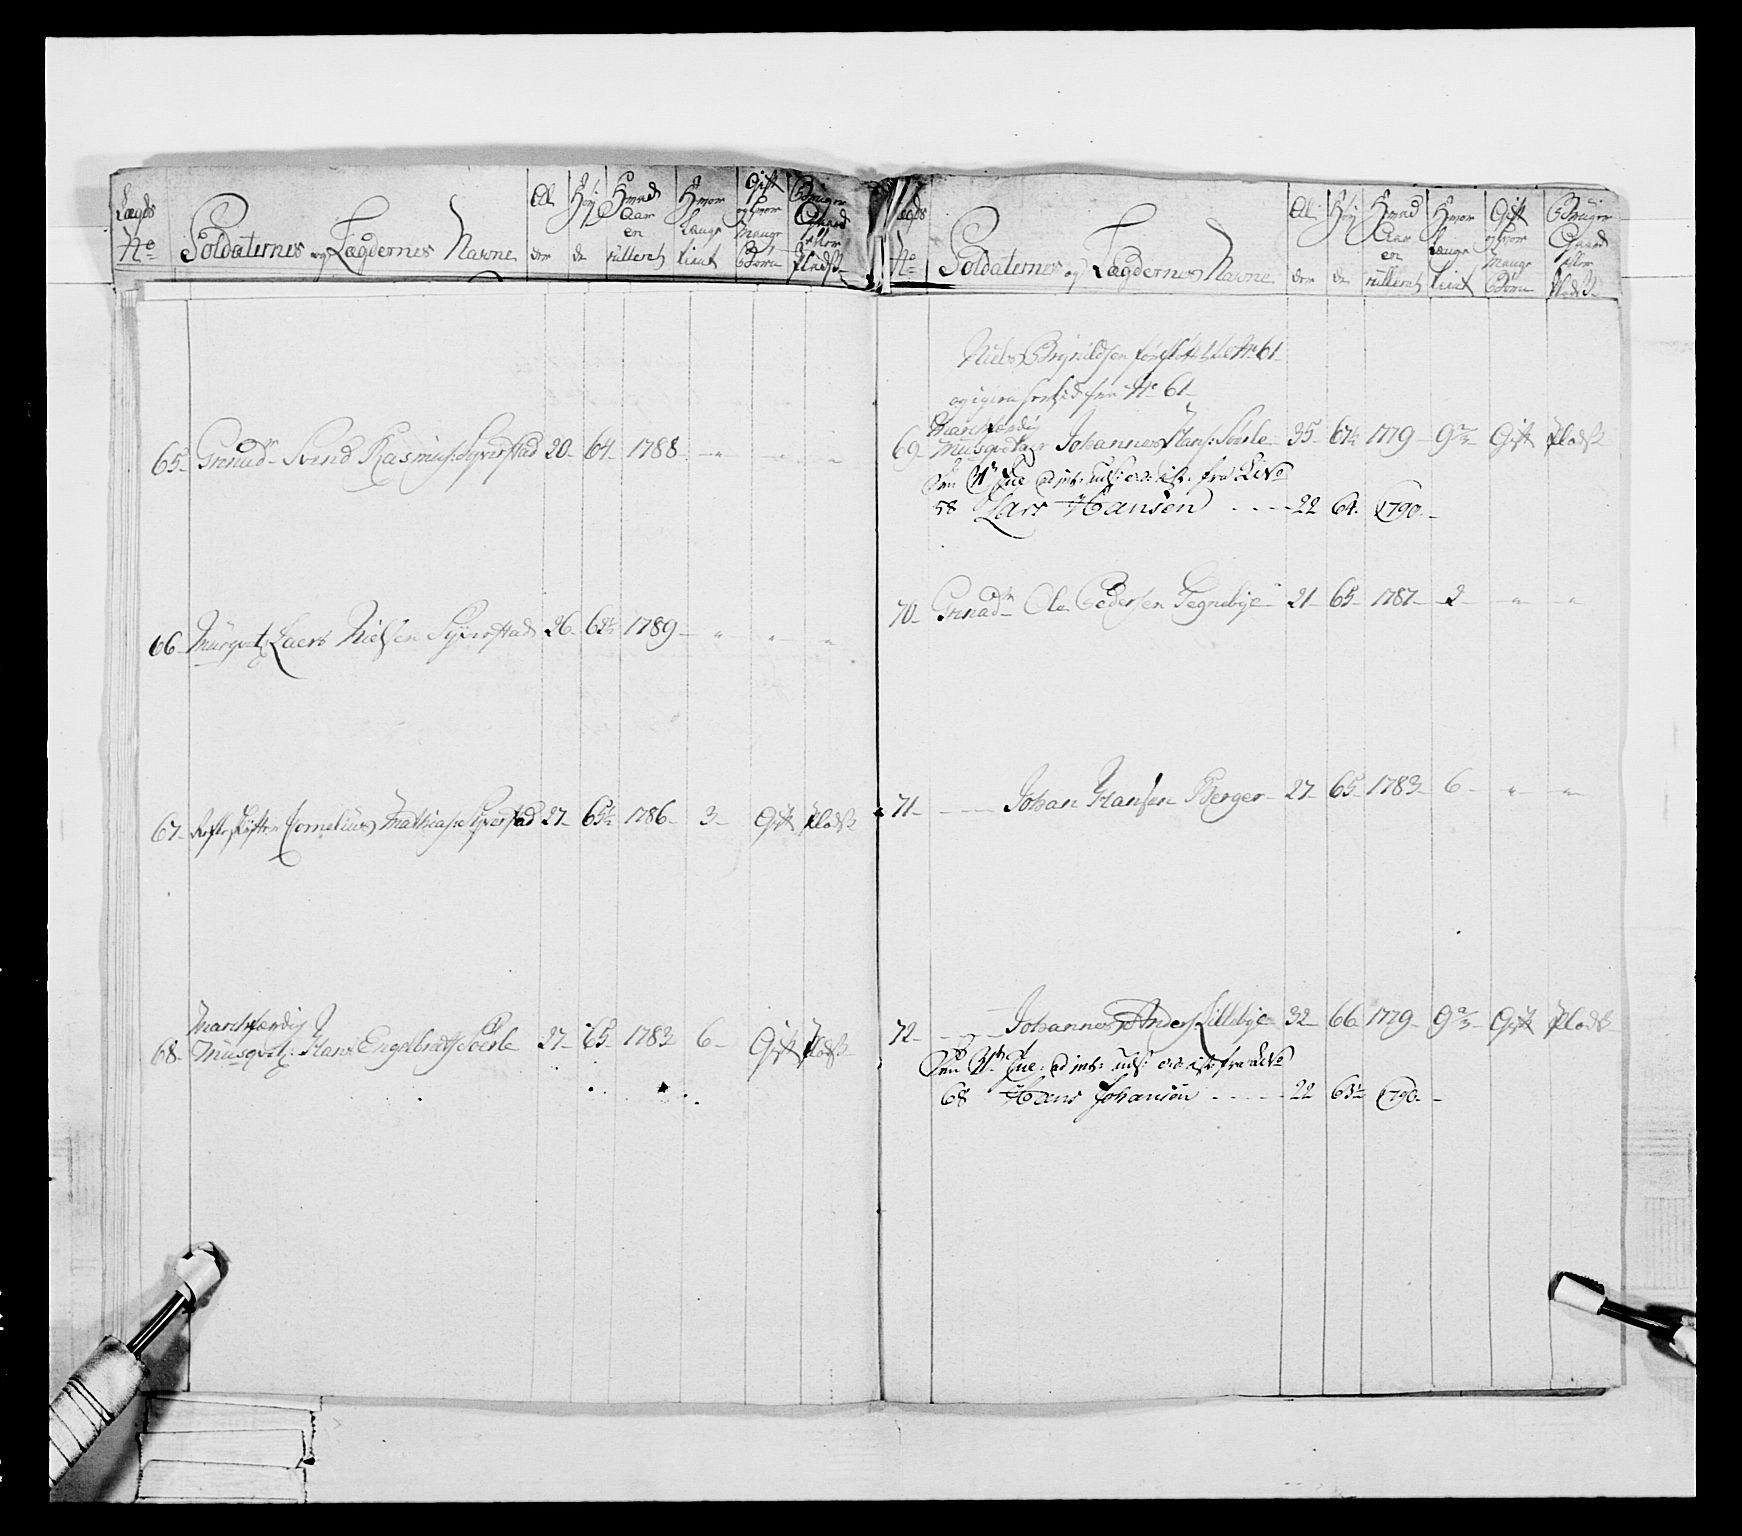 Lægds No Soldaternes og Lægdernes Navne Al der Høy de Hvad Aar en rulleret Hvor længe tient Gift og hvor Mange Børn Bruger Gaard eller Pladß
65 Grenad Svend Rasmus: Syverstad 20 64 1788 " " "
66 Musqvt Laers Nielsen Syverstad 26 62½ 1789 " " "
67 Cornelius Mathias: Syverstad 27 65½ 1786 3 Gift Pladß
Marchfærdig
68 Musqvt: Hans Engelbret: Soerle 27 65 1783 6 Gift Pladß
Lægds No Soldaternes og Lægdernes Navne Al der Høy de Hvad Aar en rulleret Hvor længe tient Gift og hvor Mange Børn Bruger Gaard eller Pladß
Niels Brynildsen til No 61
og igien fra No 61
Marchfærdig
69 Musqueteer Johannes Hans: Soerle 35 67½ 1779 9 Gift Pladß
Den fra Lit No
58 Lars Hansen 22 64 1790
70 Grenad Ole Pedersen Tegnebye 21 65 1787 2 " "
71 Johan Hansen Berger 27 65 1783 6 " "
72 Johannes Anders: Lillebye 32 66 1779 9 Gift Pladß
Den fra Lit No
68 Hans Johansen 22 63½ 1790